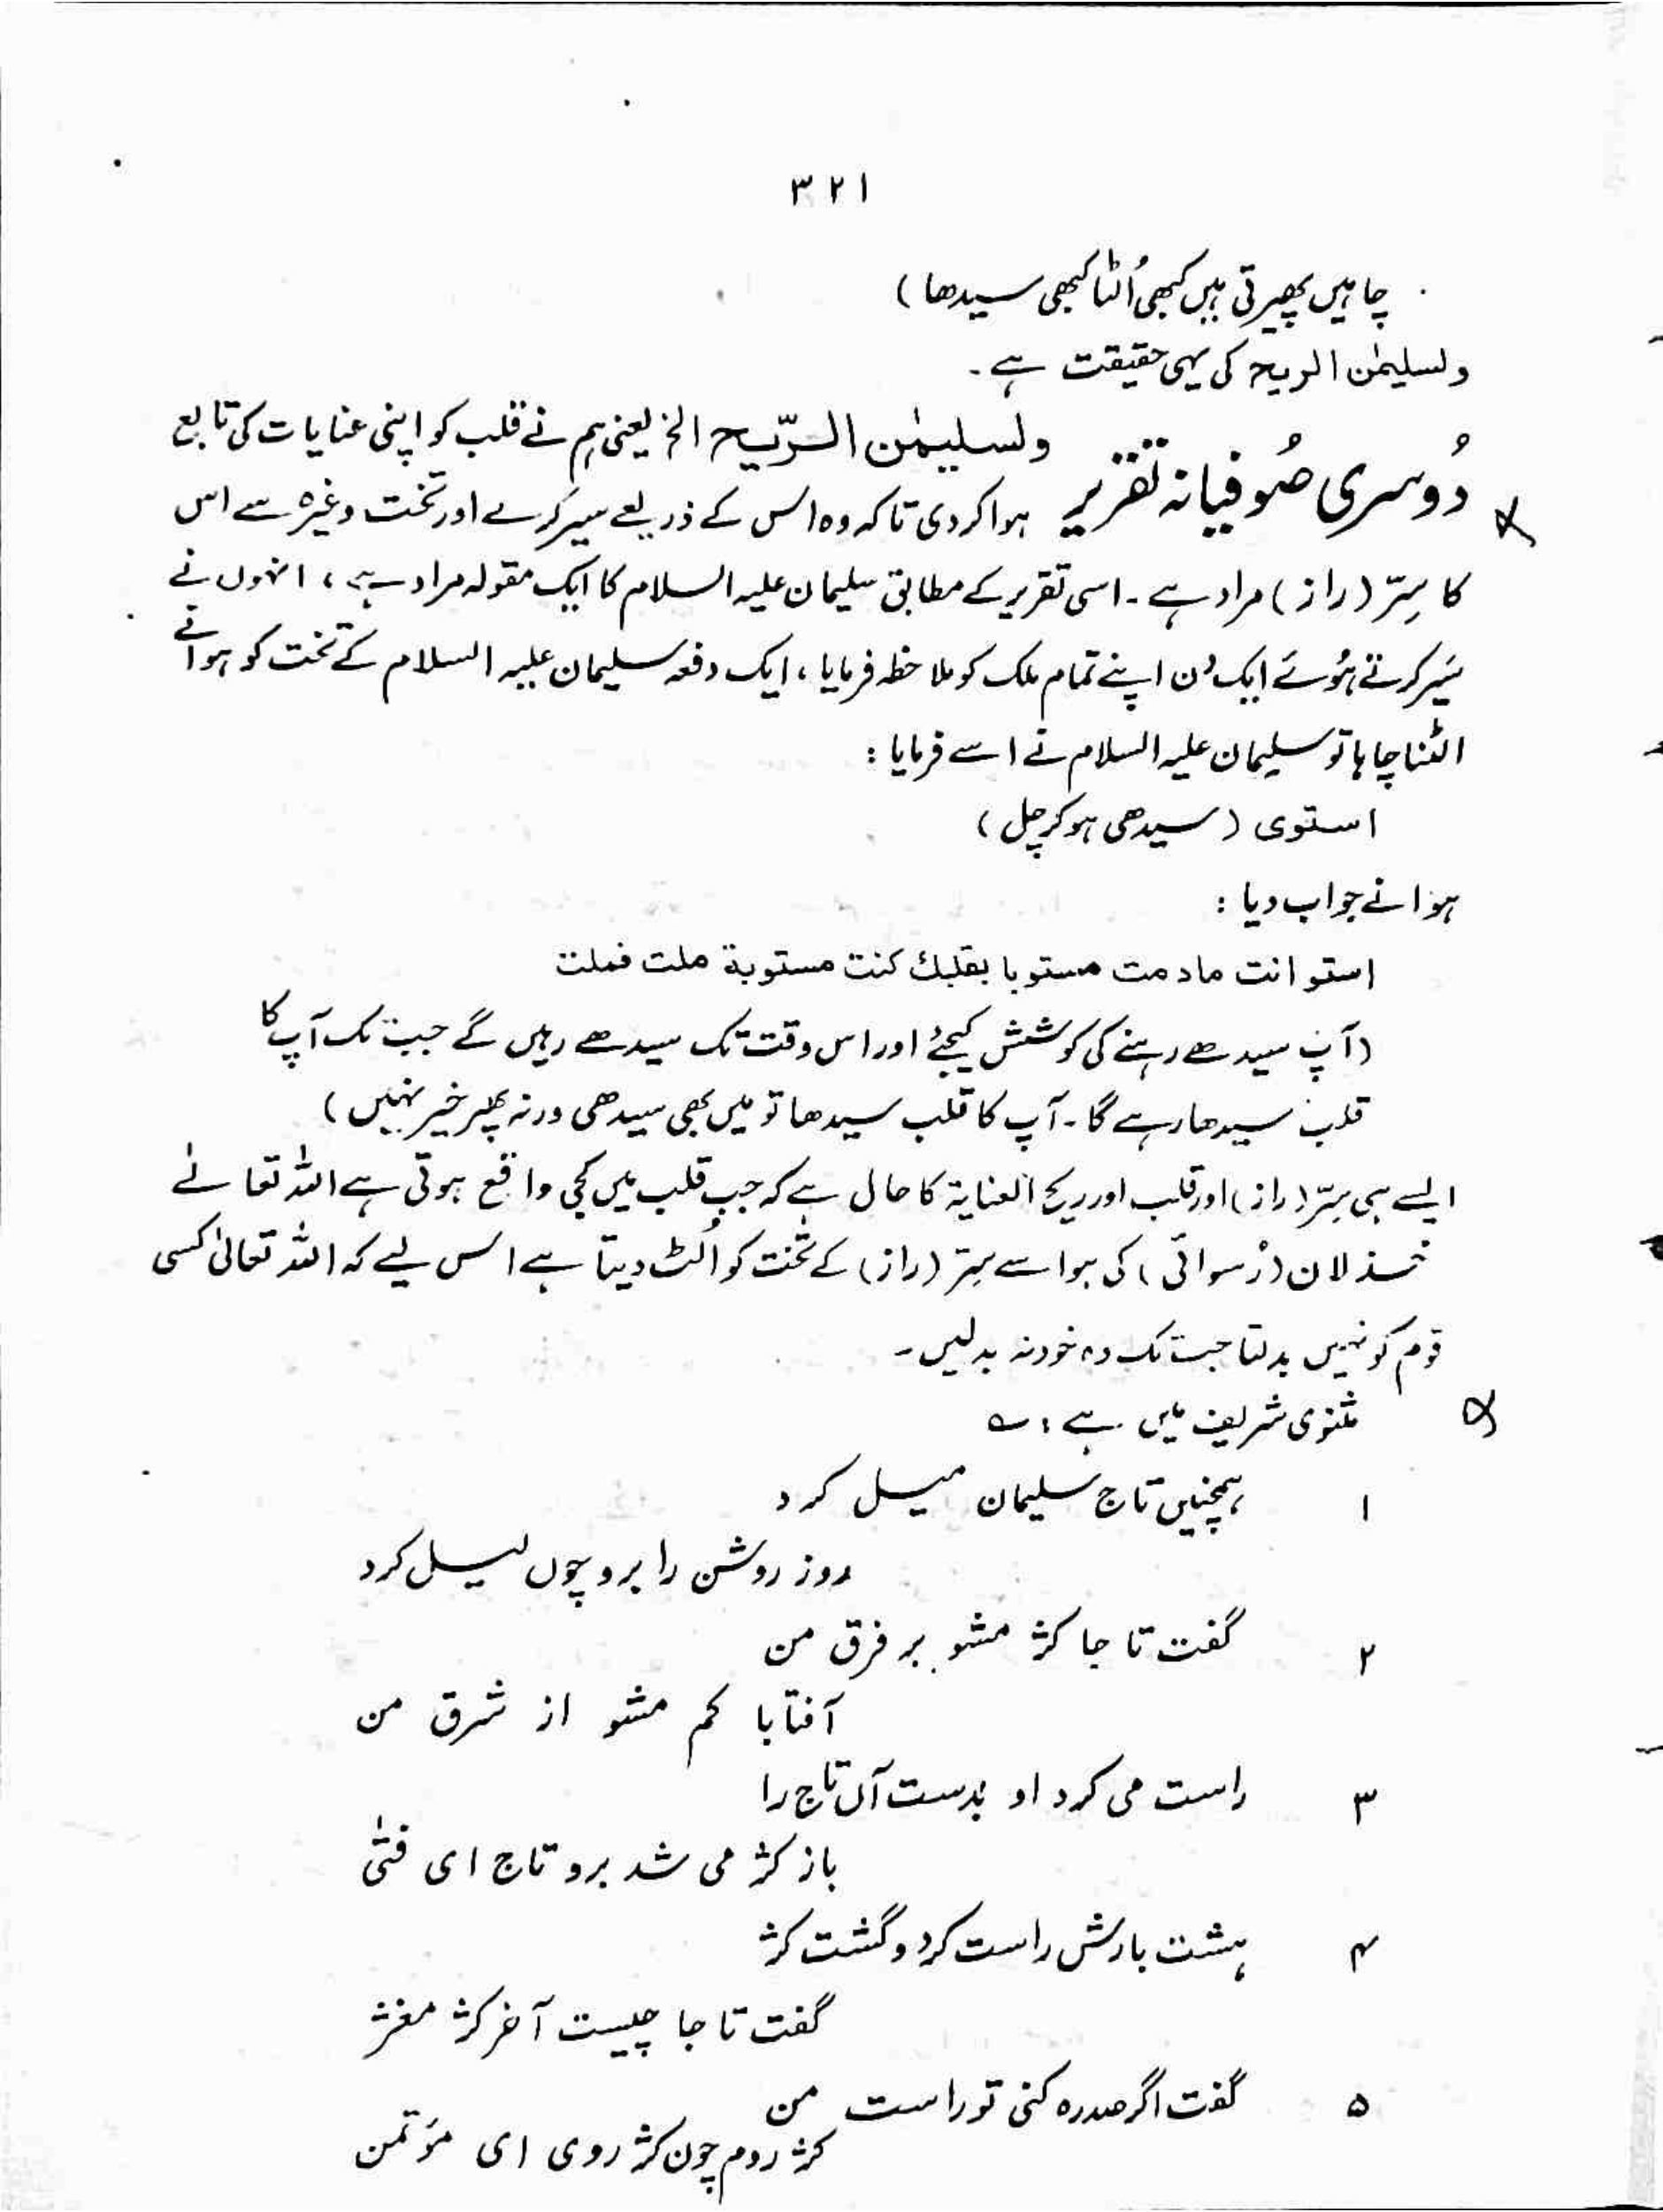 ۳۲۱
چاہیں پھیرتی ہیں کبھی اُلٹا کبھی سیدھا)
ولسلیمٰن الریح کی یہی حقیقت ہے۔
ولسلیمٰن الرّیح الخ یعنی ہم نے قلب کو اپنی عنایات کی تابع
دُوسری صُوفیانہ تقریر ہوا کردی تاکہ وہ اس کے ذریعے سیر کرے اور تخت وغیرہ سے اس
کا سِرّ (راز) مراد ہے۔ اسی تقریر کے مطابق سلیمان علیہ السلام کا ایک مقولہ مراد ہے، انہوں نے
سَیر کرتے ہُوئے ایک دن اپنے تمام ملک کو ملاحظہ فرمایا، ایک دفعہ سلیمان علیہ السلام کے تخت کو ہوا نے
الٹنا چاہا تو سلیمان علیہ السلام نے اسے فرمایا :
استوی (سیدھی ہو کر چل)
ہوا نے جواب دیا :
استو انت مادمت مستویا بقلبك كنت مستویة ملت فملت
(آپ سیدھے رہنے کی کوشش کیجئے اور اس وقت تک سیدھے رہیں گے جب تک آپ کا
قلب سیدھا رہے گا۔ آپ کا قلب سیدھا تو میں بھی سیدھی ورنہ پھر خیر نہیں)
ایسے ہی سِرّ (راز) اور قلب اور ریح العنایۃ کا حال ہے کہ جب قلب میں کجی واقع ہوتی ہے اللہ تعالےٰ
خذلان (رُسوائی) کی ہوا سے سِرّ (راز) کے تخت کو اُلٹ دیتا ہے اس لیے کہ اللہ تعالیٰ کسی
قوم کو نہیں بدلتا جب تک وہ خود نہ بدلیں۔
مثنوی شریف میں ہے : ؎
۱ ہمچنیں تاج سلیمان میل کرد
روز روشن را برو چوں لیل کرد
۲ گفت تاجا کژ مشو بر فرق من
آفتابا کم مشو از شرق من
۳ راست می کرد او بدست آں تاج را
باز کژ می شد برو تاج ای فتیٰ
۴ ہشت بارش راست کرد و گشت کژ
گفت تاجا چیست آخر کژ مغژ
۵ گفت اگر صدرہ کنی تو راست من
کژ روم چون کژ روی ای مؤتمن